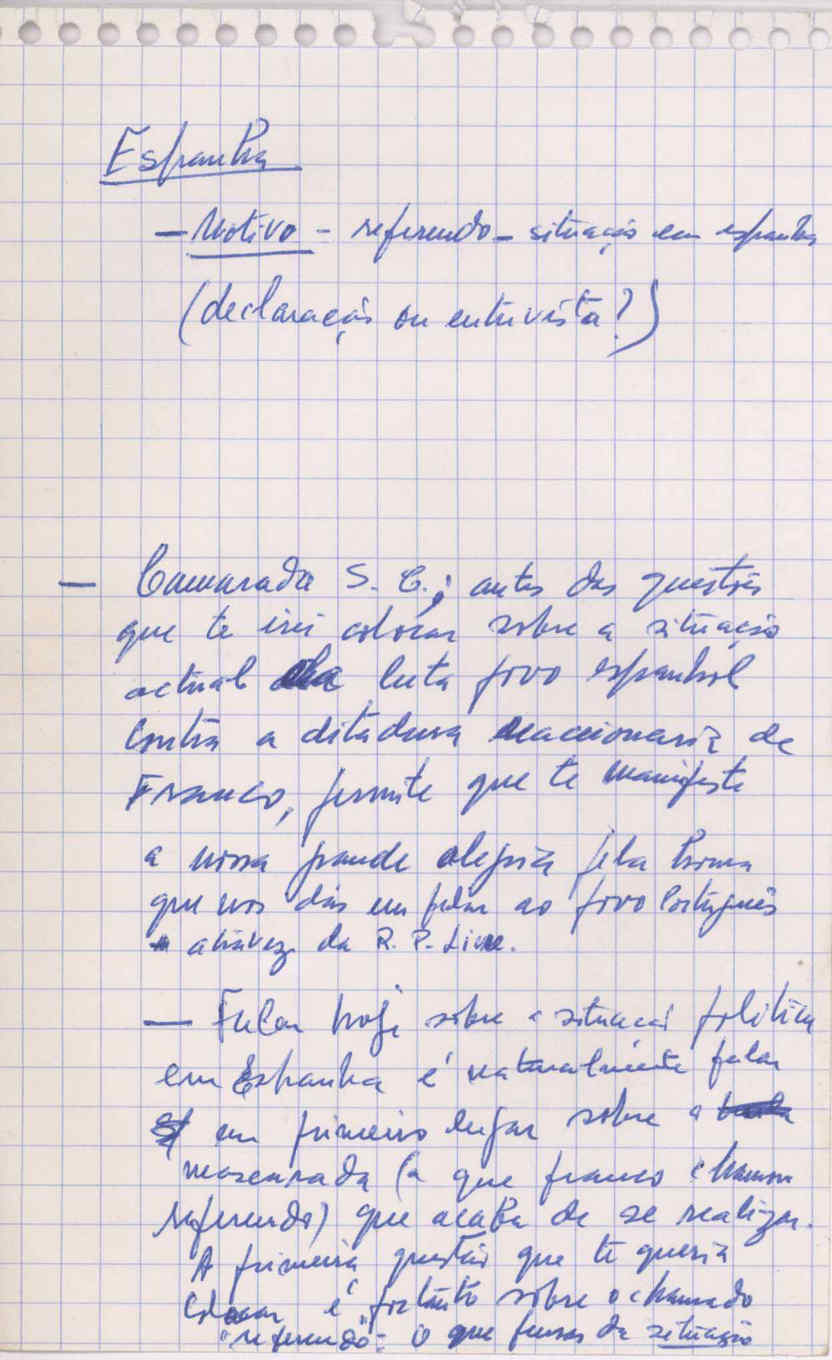 Espanha
— Motivo – referendo – situação em espanha
(declaração ou entrevista?)
— Camarada S. C.; antes das questões
que te irei colocar sobre a situação
actual da luta povo espanhol
contra a ditadura reaccionaria de
Franco, permite que te manifeste
a nossa grande alegria pela honra
que nos dás em falar ao povo Português
atravez da R. P. Livre.
— Falar hoje sobre a situacai politica
em Espanha é naturalmente falar
em primeiro lugar sobre a
mascarada (a que franco chamou
referendo) que acaba de se realizar.
A primeira questão que te queria
colocar é portanto sobre o chamado
"referendo": O que pensas da situação